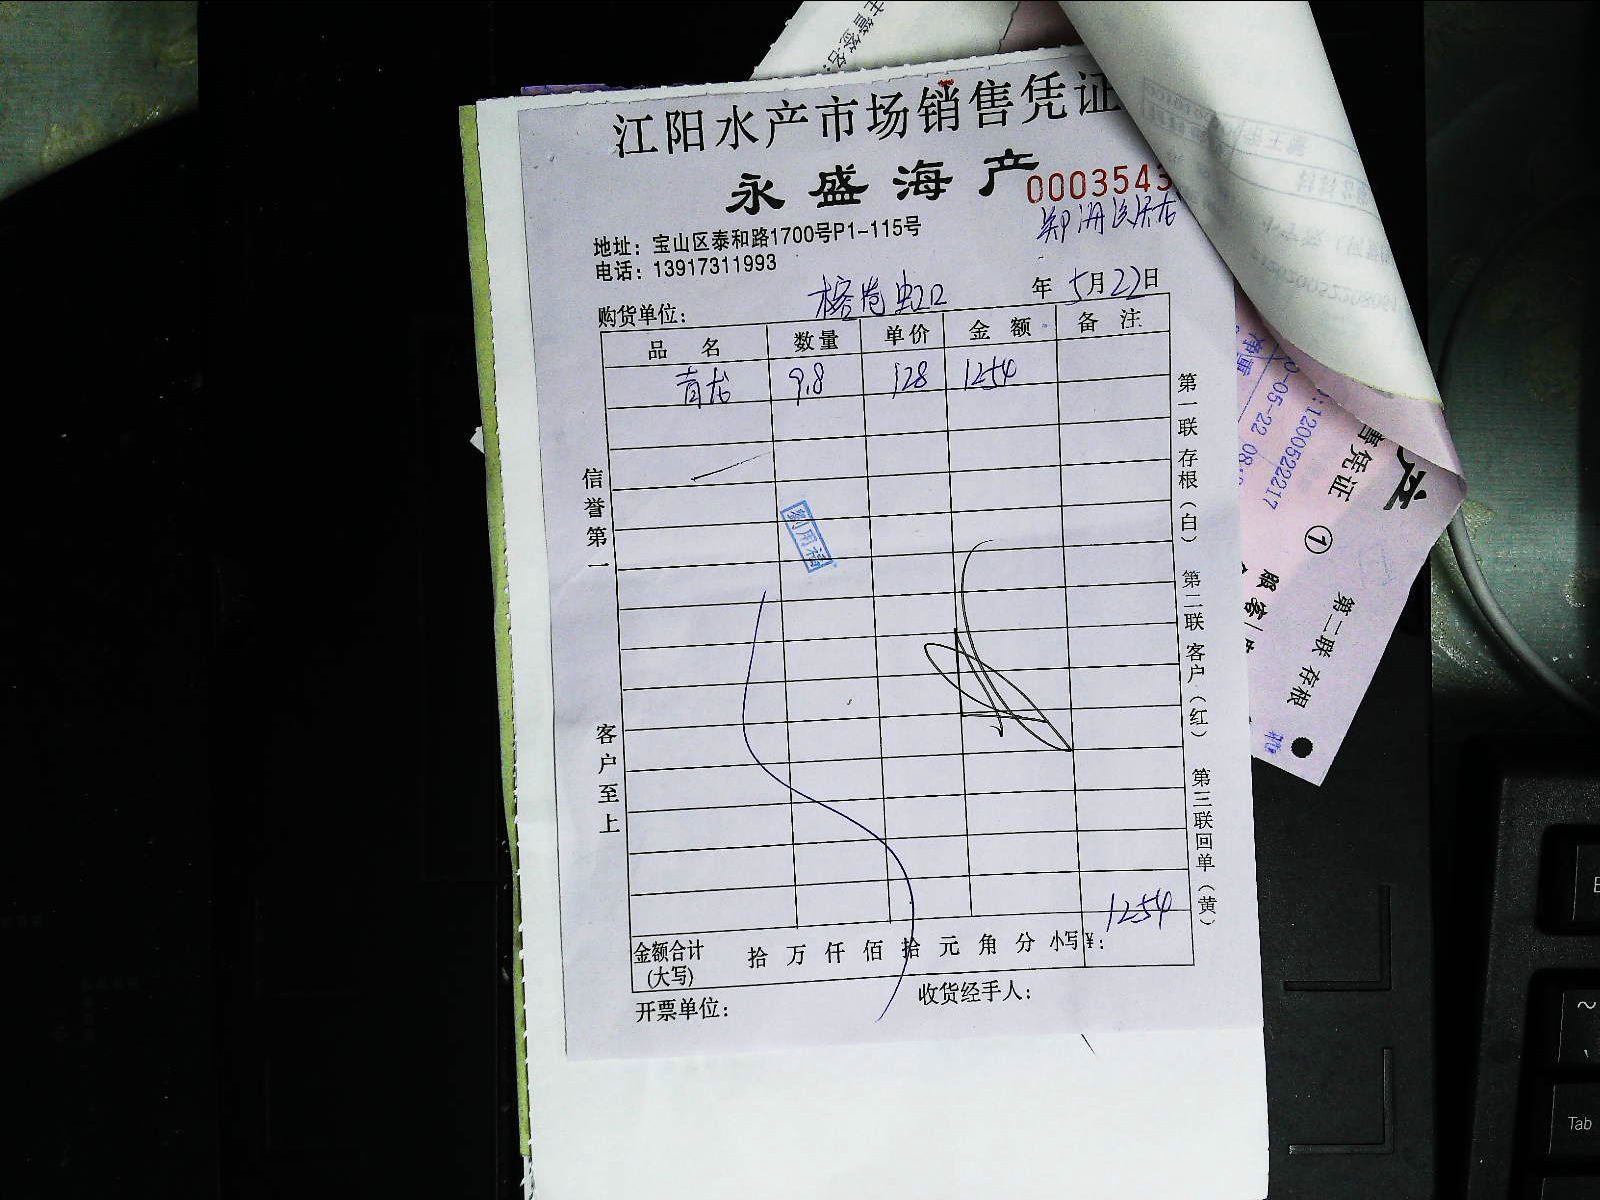 主管签名:
江阳水产市场销售凭证
永盛海产
0003543
地址：宝山区泰和路1700号P1-115号
电话：13917311993
购货单位：
虹口
年 5月22日
品名 数量 单价 金额 备注
青龙 9.8 128 1254
信誉第一
客户至上
刘用福
第一联存根（白） 第二联客户（红） 第三联回单（黄）
1254
金额合计(大写) 拾 万 仟 佰 拾 元 角 分 小写¥：
开票单位：
收货经手人：
:1200522217
0-05-22 08:
售凭证 ①
产
第二联 存根
Tab